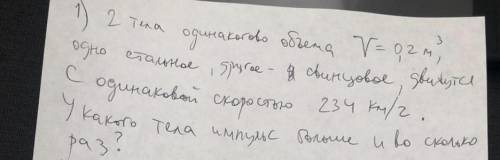 1) 2 тела одинакогово объема V = 0,2 м³,
одно стальное, другое - свинцовое, движутся
с одинаковой скоростью 234 км/г.
У какого тела импульс больше и во сколько
раз?